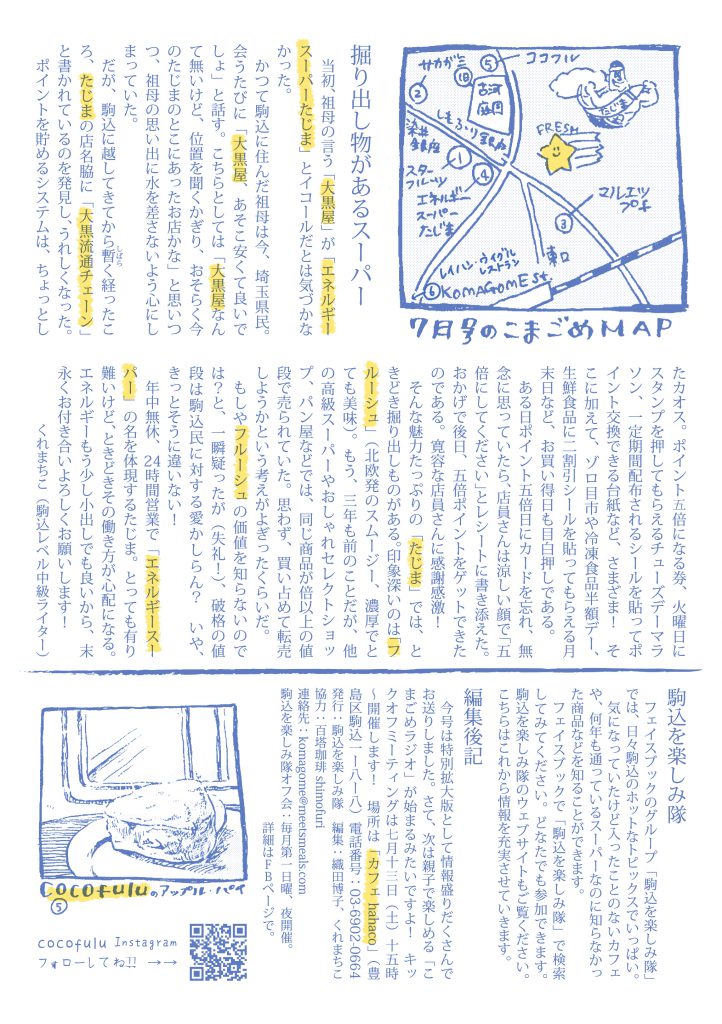 掘り出し物があるスーパー
当初、祖母の言う「大黒屋」が「エネルギー
スーパーたじま」とイコールだとは気づかな
かった。
かつて駒込に住んだ祖母は今、埼玉県民。
会うたびに「大黒屋、あそこ安くて良いで
しょ」と話す。こちらとしては「大黒屋なん
て無いけど、位置を聞くかぎり、おそらく今
のたじまのとこにあったお店かな」と思いつ
つ、祖母の思い出に水を差さないよう心にし
まっていた。
だが、駒込に越してきてから暫く経ったこ
しばら
ろ、たじまの店名脇に「大黒流通チェーン」
と書かれているのを発見し、うれしくなった。
ポイントを貯めるシステムは、ちょっとし
サカガミ
⑤
ココフル
②
18
古河
庭園
たじま
染井
銀座
しもふり銀座
FRESH
①
スター
フルーツ
④
エネルギー
スーパー
たじま
マルエツ
プチ
③
東口
レイハン・ウイグル
レストラン
⑥
KOMAGOME St.
7月号のこまごめMAP
たカオス。ポイント五倍になる券、火曜日に
スタンプを押してもらえるチューズデーマラ
ソン、一定期間配布されるシールを貼ってポ
イント交換できる台紙など、さまざま! そ
こに加えて、ゾロ目市や冷凍食品半額デー、
生鮮食品に二割引シールを貼ってもらえる月
末日など、お買い得日も目白押しである。
ある日ポイント五倍日にカードを忘れ、無
念に思っていたら、店員さんは涼しい顔で「五
倍にしてください」とレシートに書き添えた。
おかげで後日、五倍ポイントをゲットできた
のである。寛容な店員さんに感謝感激!
そんな魅力たっぷりの「たじま」では、と
きどき掘り出しものがある。印象深いのは「フ
ルーシュ」（北欧発のスムージー、濃厚でと
ても美味）。もう、三年も前のことだが、他
の高級スーパーやおしゃれセレクトショッ
プ、パン屋などでは、同じ商品が倍以上の値
段で売られていた。思わず、買い占めて転売
しようかという考えがよぎったくらいだ。
もしやフルーシュの価値を知らないので
は?と、一瞬疑ったが（失礼!）、破格の値
段は駒込民に対する愛かしらん? いや、
きっとそうに違いない!
年中無休、24時間営業で「エネルギースー
パー」の名を体現するたじま。とっても有り
難いけど、ときどきその働き方が心配になる。
エネルギーもう少し小出しでも良いから、末
永くお付き合いよろしくお願いします!
くれまちこ（駒込レベル中級ライター）
駒込を楽しみ隊
フェイスブックのグループ「駒込を楽しみ隊」
では、日々駒込のホットなトピックスでいっぱい。
気になっていたけど入ったことのないカフェ
や、何年も通っているスーパーなのに知らなかっ
た商品などを知ることができます。
フェイスブックで「駒込を楽しみ隊」で検索
してみてください。どなたでも参加できます。
駒込を楽しみ隊のウェブサイトもご覧ください。
こちらはこれから情報を充実させていきます。
編集後記
今号は特別拡大版として情報盛りだくさんで
お送りしました。さて、次は親子で楽しめる「こ
まごめラジオ」が始まるみたいですよ! キッ
クオフミーティングは七月十三日（土）十五時
〜開催します! 場所は「カフェhahaco」（豊
島区駒込1ー8ー8）電話番号：03-6902-0664
発行：駒込を楽しみ隊 編集：織田博子、くれまちこ
協力：百塔珈琲 shimofuri
連絡先：komagome@meetsmeals.com
駒込を楽しみ隊オフ会：毎月第一日曜、夜開催。
詳細はFBページで。
cocofuluのアップル・パイ
⑤
cocofulu Instagram
フォローしてね!! →→